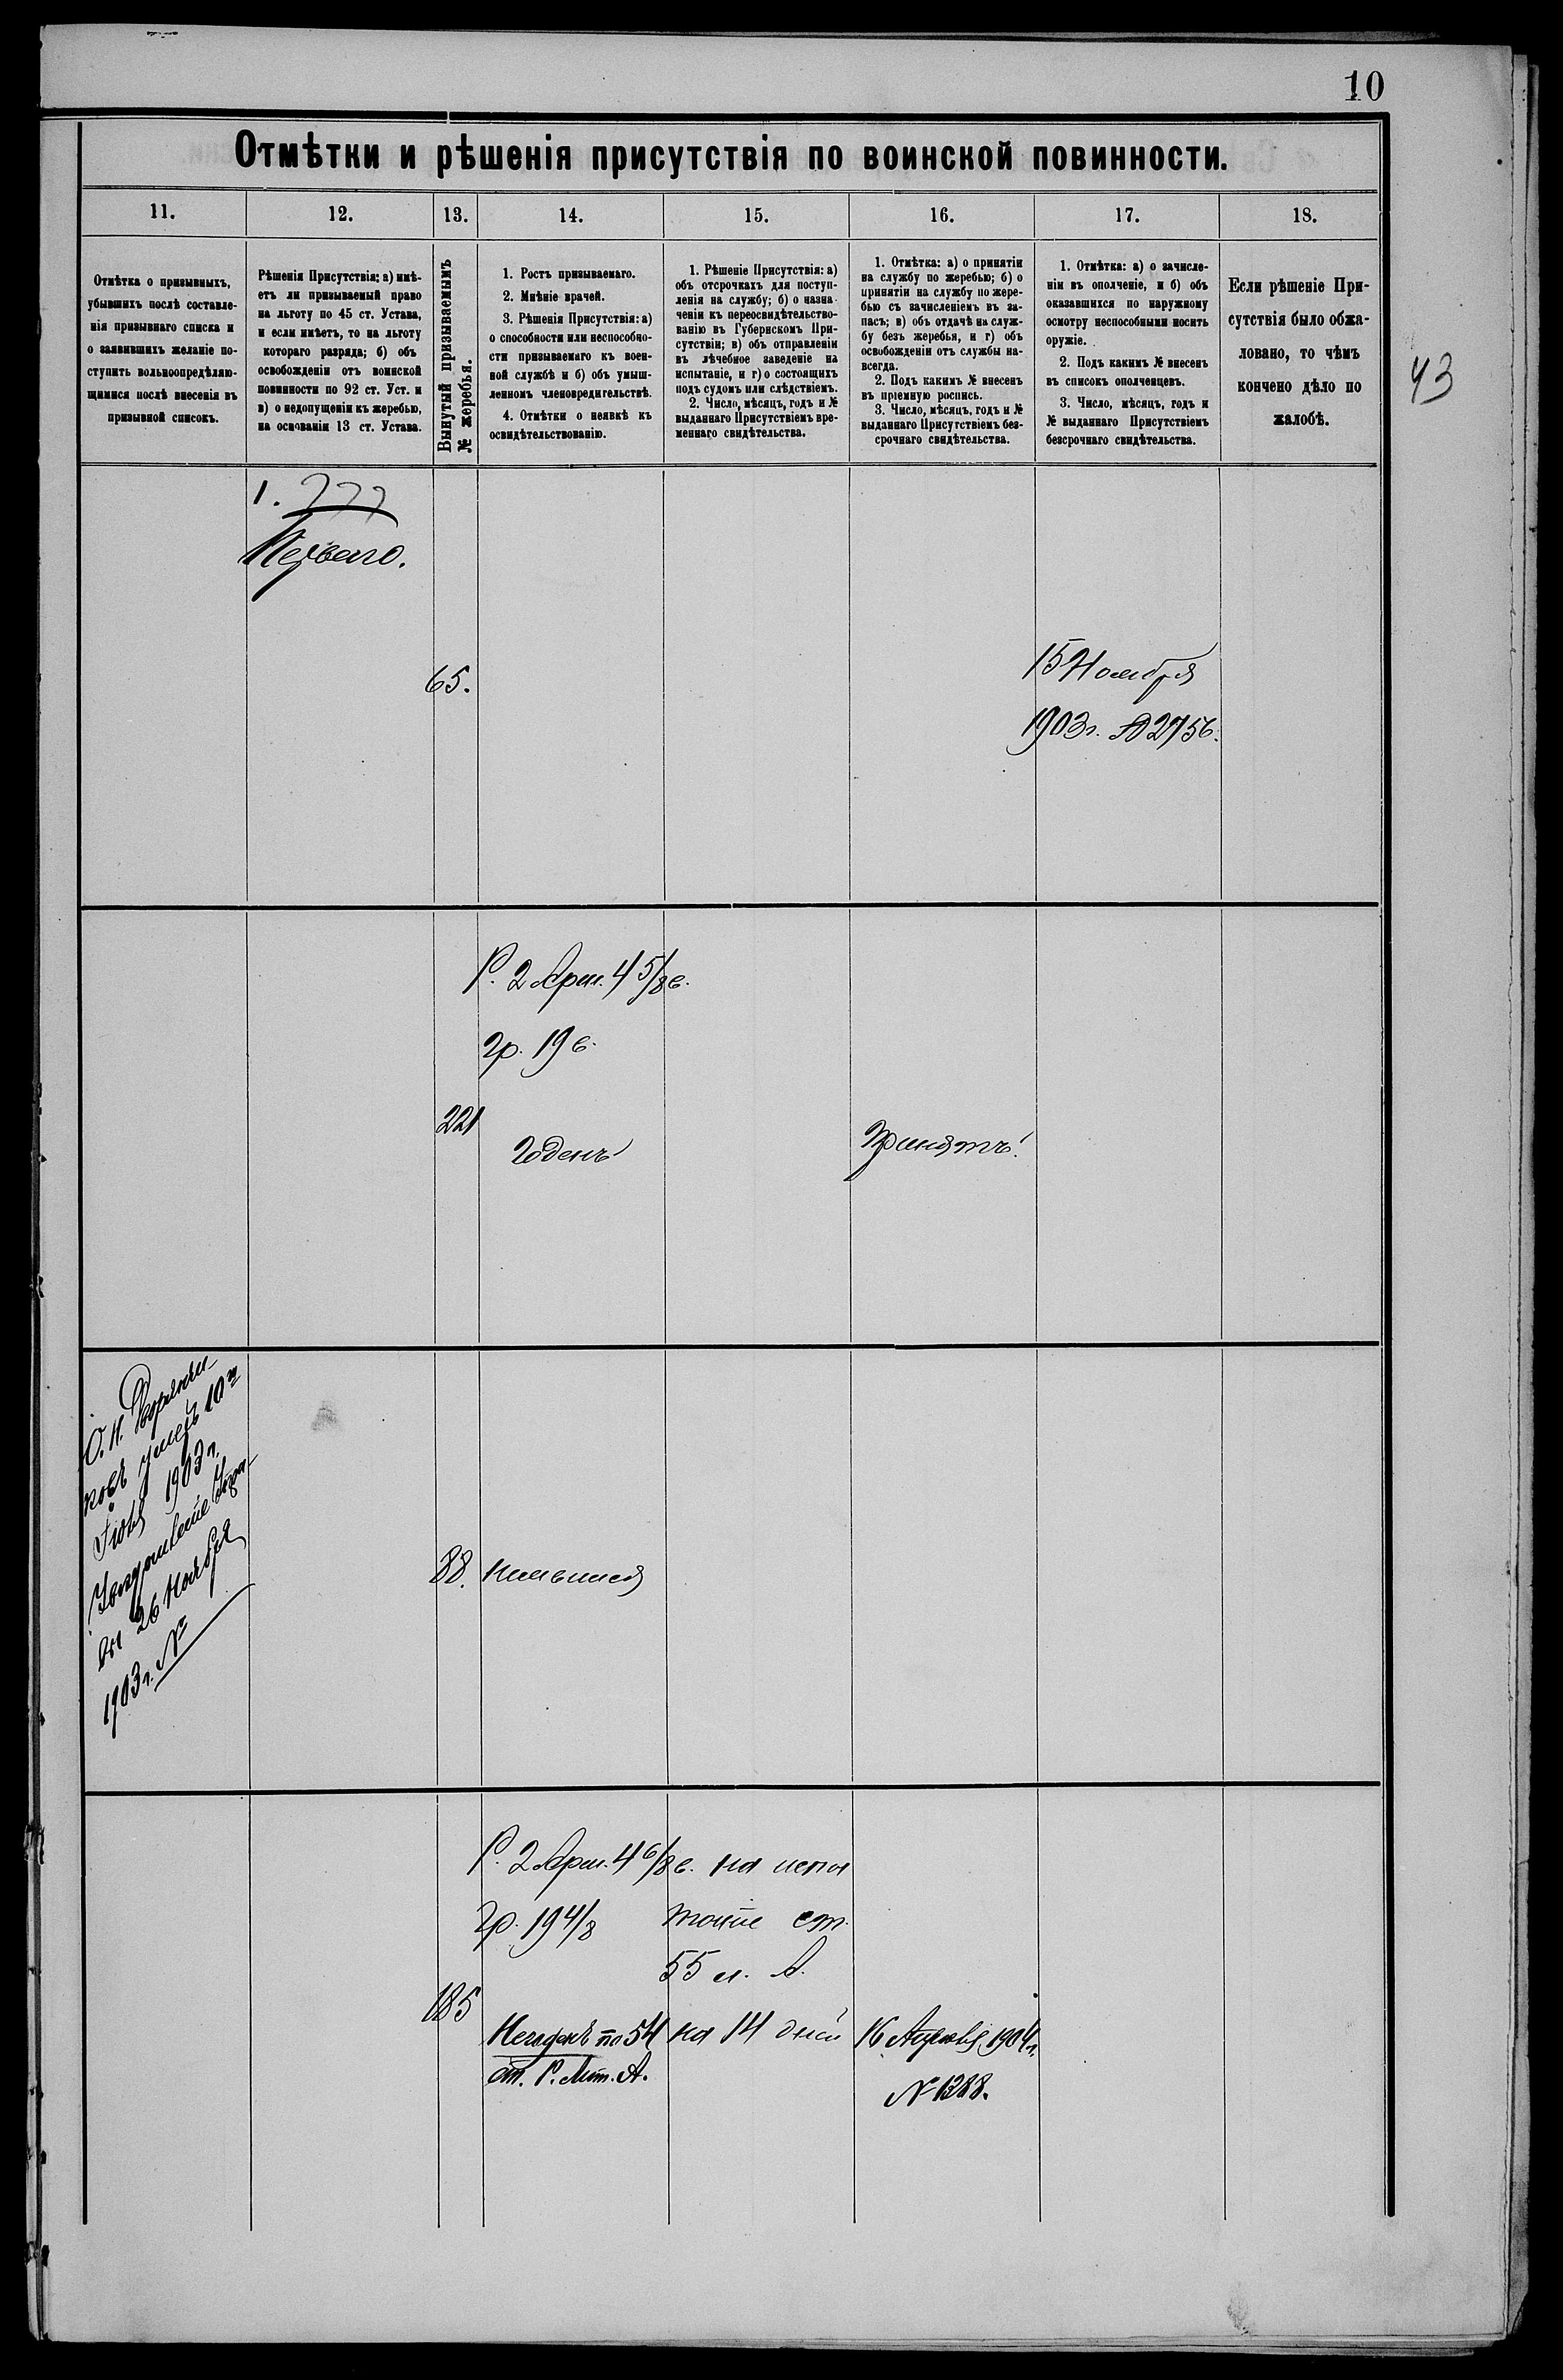 10
Отмѣтки и рѣшенія присутствія по воинской повинности.
11.
12.
13.
14.
15.
16.
17.
18.
Отмѣтка о призывныхъ,
убывшихъ послѣ составле-
нія призывнаго списка и
о заявившихъ желаніе по-
ступить вольноопредѣляю-
щимися послѣ внесенія въ
призывной списокъ.
Рѣшенія Присутствія: а) имѣ-
етъ ли призываемый право
на льготу по 45 ст. Устава,
и если имѣетъ, то на льготу
котораго разряда; б) объ
освобожденіи отъ воинской
повинности по 92 ст. Уст. и
в) о недопущеніи къ жеребью,
на основаніи 13 ст. Устава.
Вынутый призываемымъ
№ жеребья.
1. Ростъ призываемаго.
2. Мнѣніе врачей.
3. Рѣшенія Присутствія: а)
о способности или неспособно-
сти призываемаго къ воен-
ной службѣ и б) объ умыш-
ленномъ членовредительствѣ.
4. Отмѣтки о неявкѣ къ
освидѣтельствованію.
1. Рѣшеніе Присутствія: а)
объ отсрочкахъ для поступ-
ленія на службу; б) о назна-
ченіи къ переосвидѣтельство-
ванію въ Губернскомъ При-
сутствіи; в) объ отправленіи
въ лѣчебное заведеніе на
испытаніе, и г) о состоящихъ
подъ судомъ или слѣдствіемъ.
2. Число, мѣсяцъ, годъ и №
выданнаго Присутствіемъ вре-
меннаго свидѣтельства.
1. Отмѣтка: а) о принятіи
на службу по жеребью; б) о
принятіи на службу по жере-
бью съ зачисленіемъ въ за-
пасъ; в) объ отдачѣ на служ-
бу безъ жеребья, и г) объ
освобожденіи отъ службы на-
всегда.
2. Подъ какимъ № внесенъ
въ пріемную роспись.
3. Число, мѣсяцъ, годъ и №
выданнаго Присутствіемъ без-
срочнаго свидѣтельства.
1. Отмѣтка: а) о зачисле-
ніи въ ополченіе, и б) объ
оказавшихся по наружному
осмотру неспособными носить
оружіе.
2. Подъ какимъ № внесенъ
въ списокъ ополченцевъ.
3. Число, мѣсяцъ, годъ и
№ выданнаго Присутствіемъ
безсрочнаго свидѣтельства.
Если рѣшеніе При-
сутствія было обжа-
ловано, то чѣмъ
кончено дѣло по
жалобѣ.
43
1.
Перваго.
65.
15 Ноября
1903г. № 2756.
Р. 2 Арш. 4 5/8 в.
гр. 19 в.
221
Годенъ
Принятъ.
умеръ 10го
1903 г.
26 Ноября
1903 г. №
88.
неявился
Р. 2 Арш. 4 6/8 в.
гр. 19 4/8
185
Негоденъ по 54
ст. Р. Лит. А.
на испы
таніе ст.
55 л. А.
на 14 дней
16 Апрѣля 1904 г.
№ 1288.